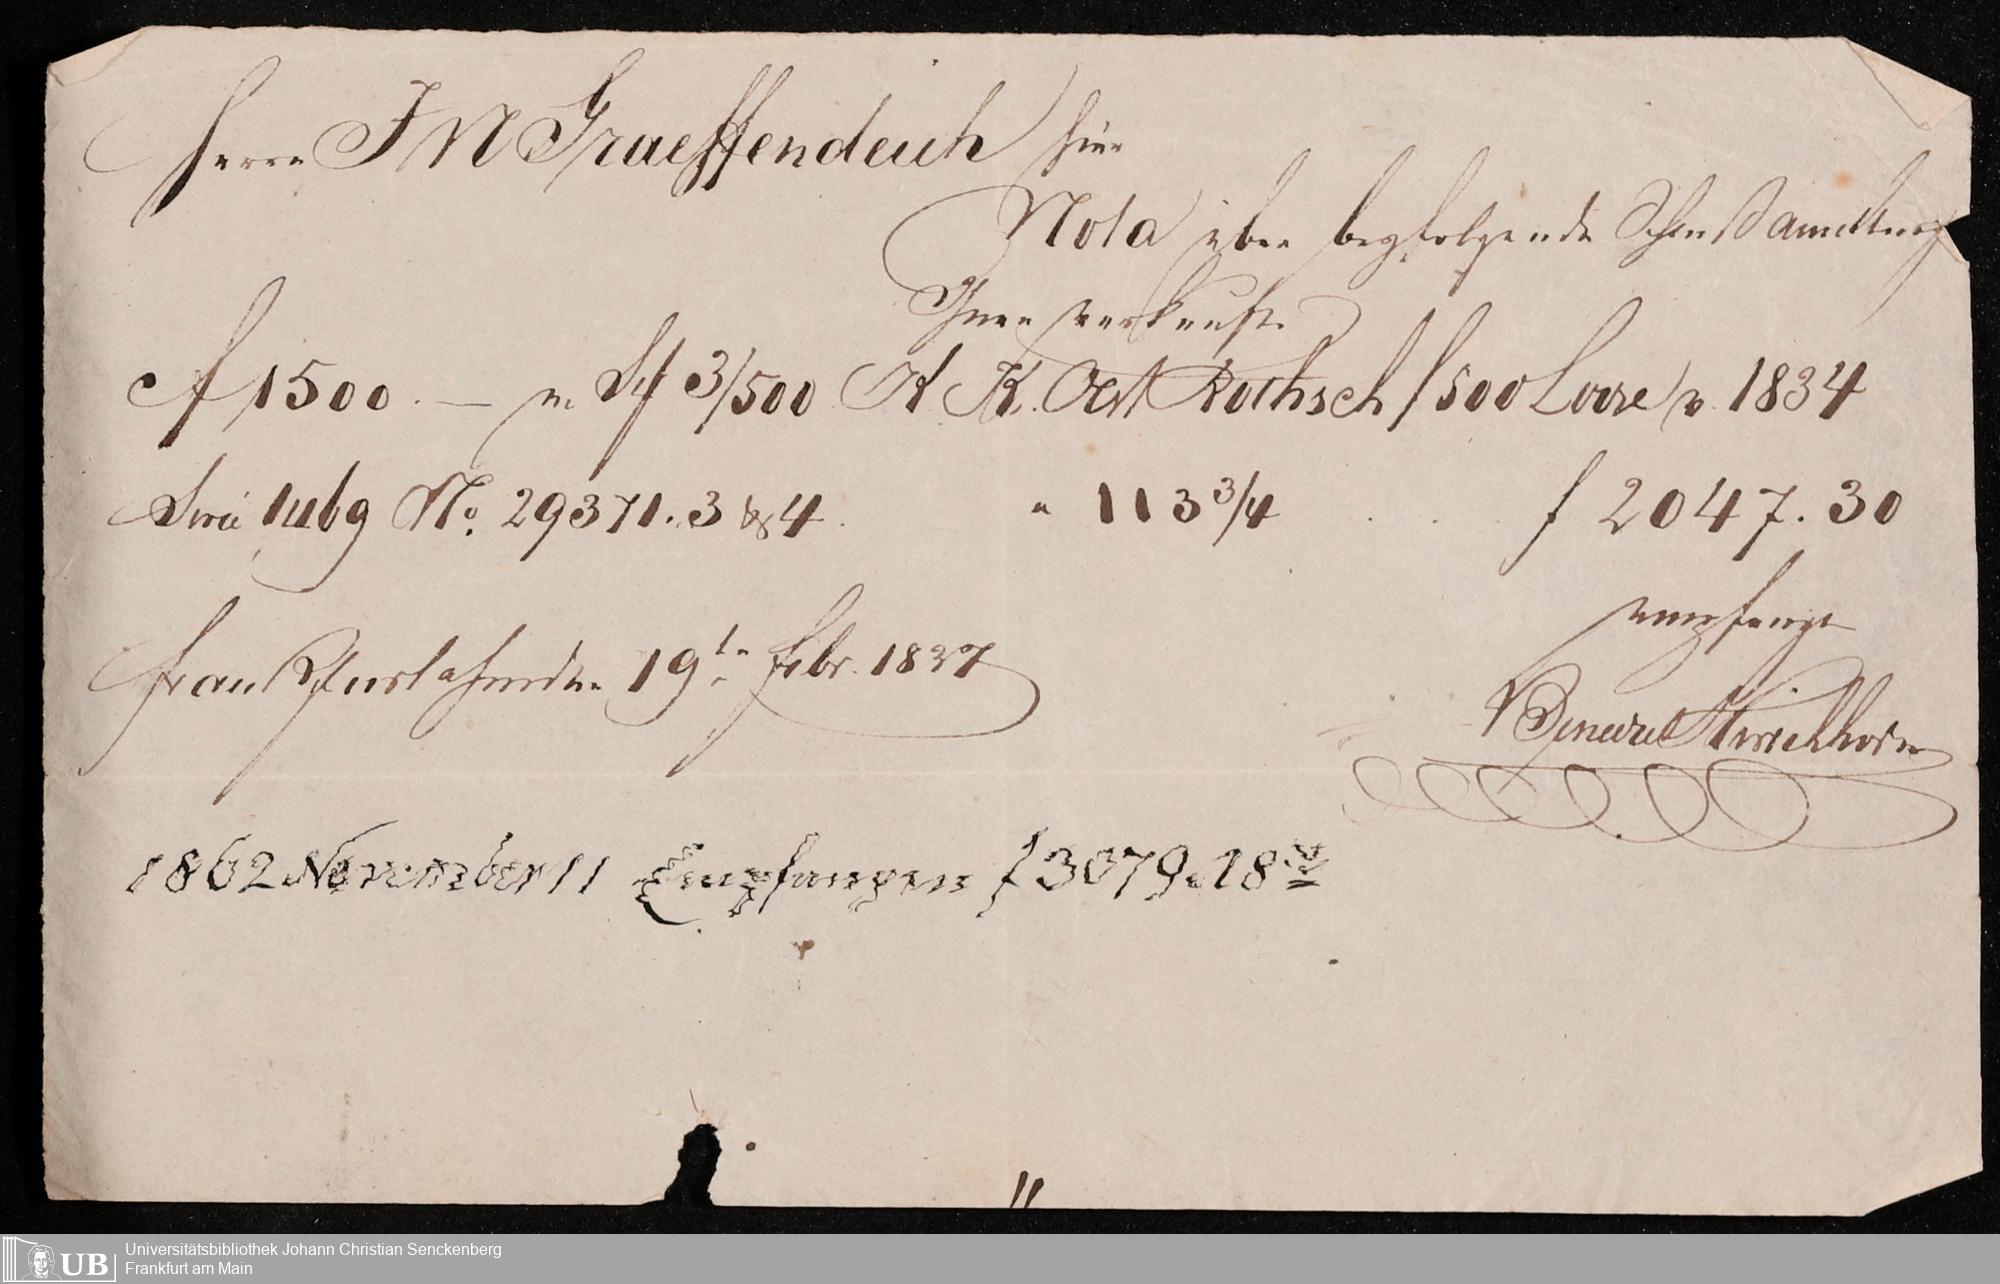 Herrn J N Graeffendeich hier
Nota über
Ihnen verkaufte
f 1500. — in 3/500 K. K. Oest Rothsch f 500 Loose v. 1834
Serie 1469 No. 29371. 3 & 4. a 113 3/4 . . . f 2047. 30
empfangen
19t Febr. 1837
Benedict Hirschhorn
1862 November 11 Empfangen f 3079. 18 x
Universitätsbibliothek Johann Christian Senckenberg
UB Frankfurt am Main